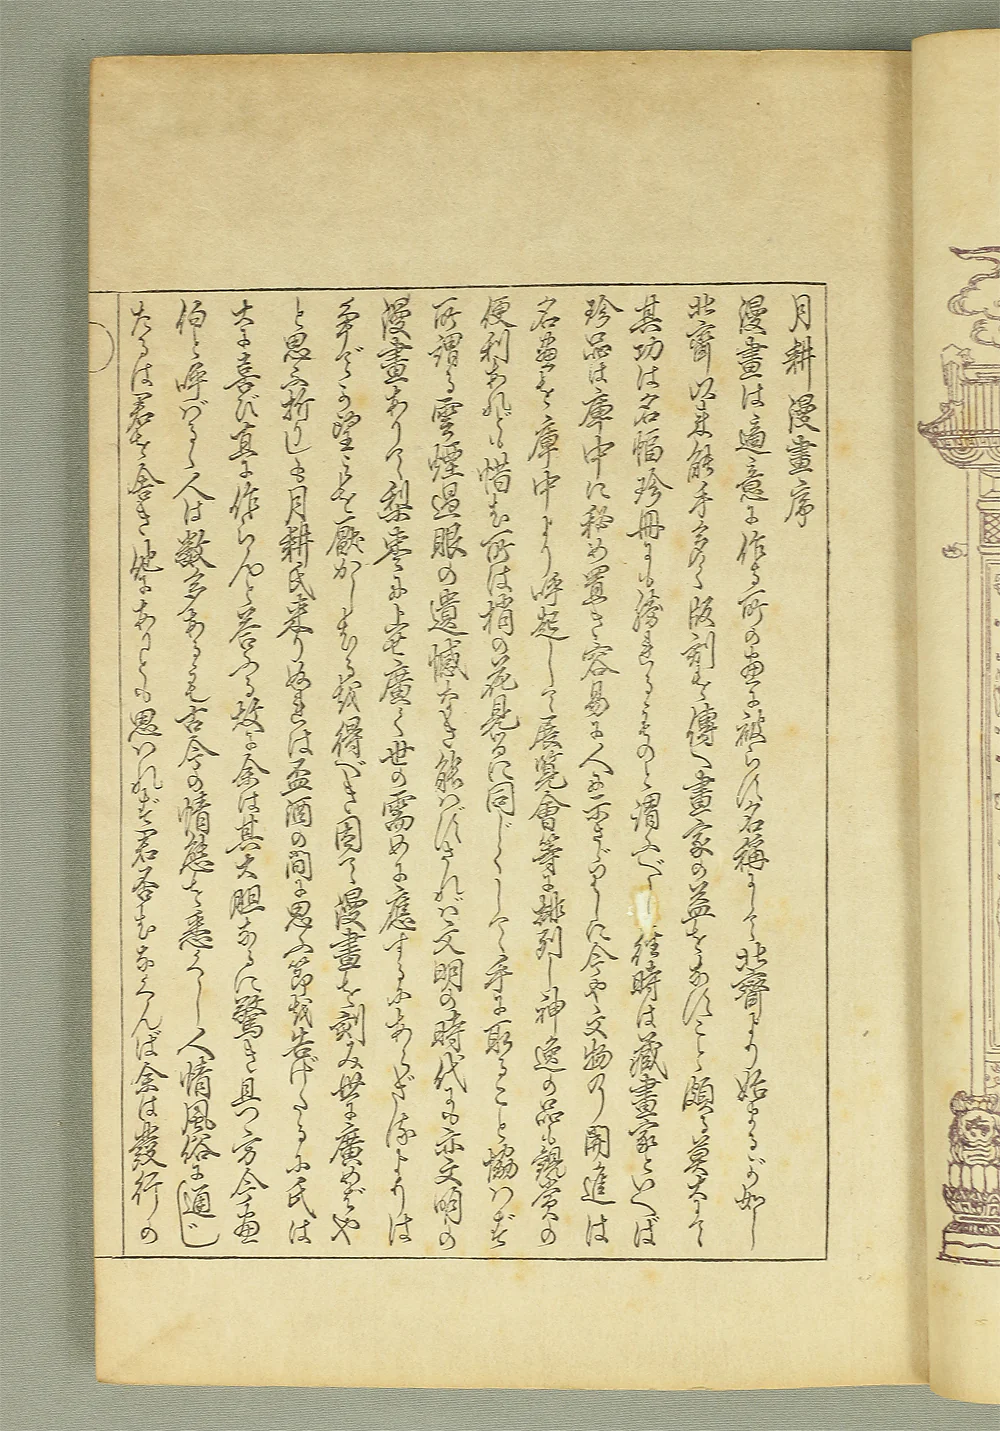 月耕漫畫序
漫畫は適意に作る所の畫に被らす名稱にして北齋より始まるが如し
北齋以来能手多く版刻を傳へ畫家の益をなすこと頗る莫大にて
其功は名幅珍冊にも勝れるものと謂ふべし往時は藏畫家といへば
珍品は庫中に秘め置き容易に人に示さゞりしに今や文物の開進は
名畫を庫中より呼起して展覧會等に排列し神逸の品も観賞の
便利あれども惜む所は梢の花見るに同じくして手に取ること協はず
所謂る雲煙過眼の遺憾なき能はずされば文明の時代にも亦文明の
漫畫ありて梨棗に上せ廣く世の需めに應するにあらざるよりは
争でか望みを厭かしむるを得べき因て漫畫を刻み世に廣めばや
と思ふ折しも月耕氏来りぬれは盃酒の間に思ふ節を告げたるに氏は
大に喜び直に作らんと答ふる故に余は其大胆なるに驚き且つ方今畫
伯と呼ばるゝ人は数多あるも古今の情態を悉くし人情風俗に通じ
たるは君を舎き他にありとも思はれず君否むなくんば余は發行の